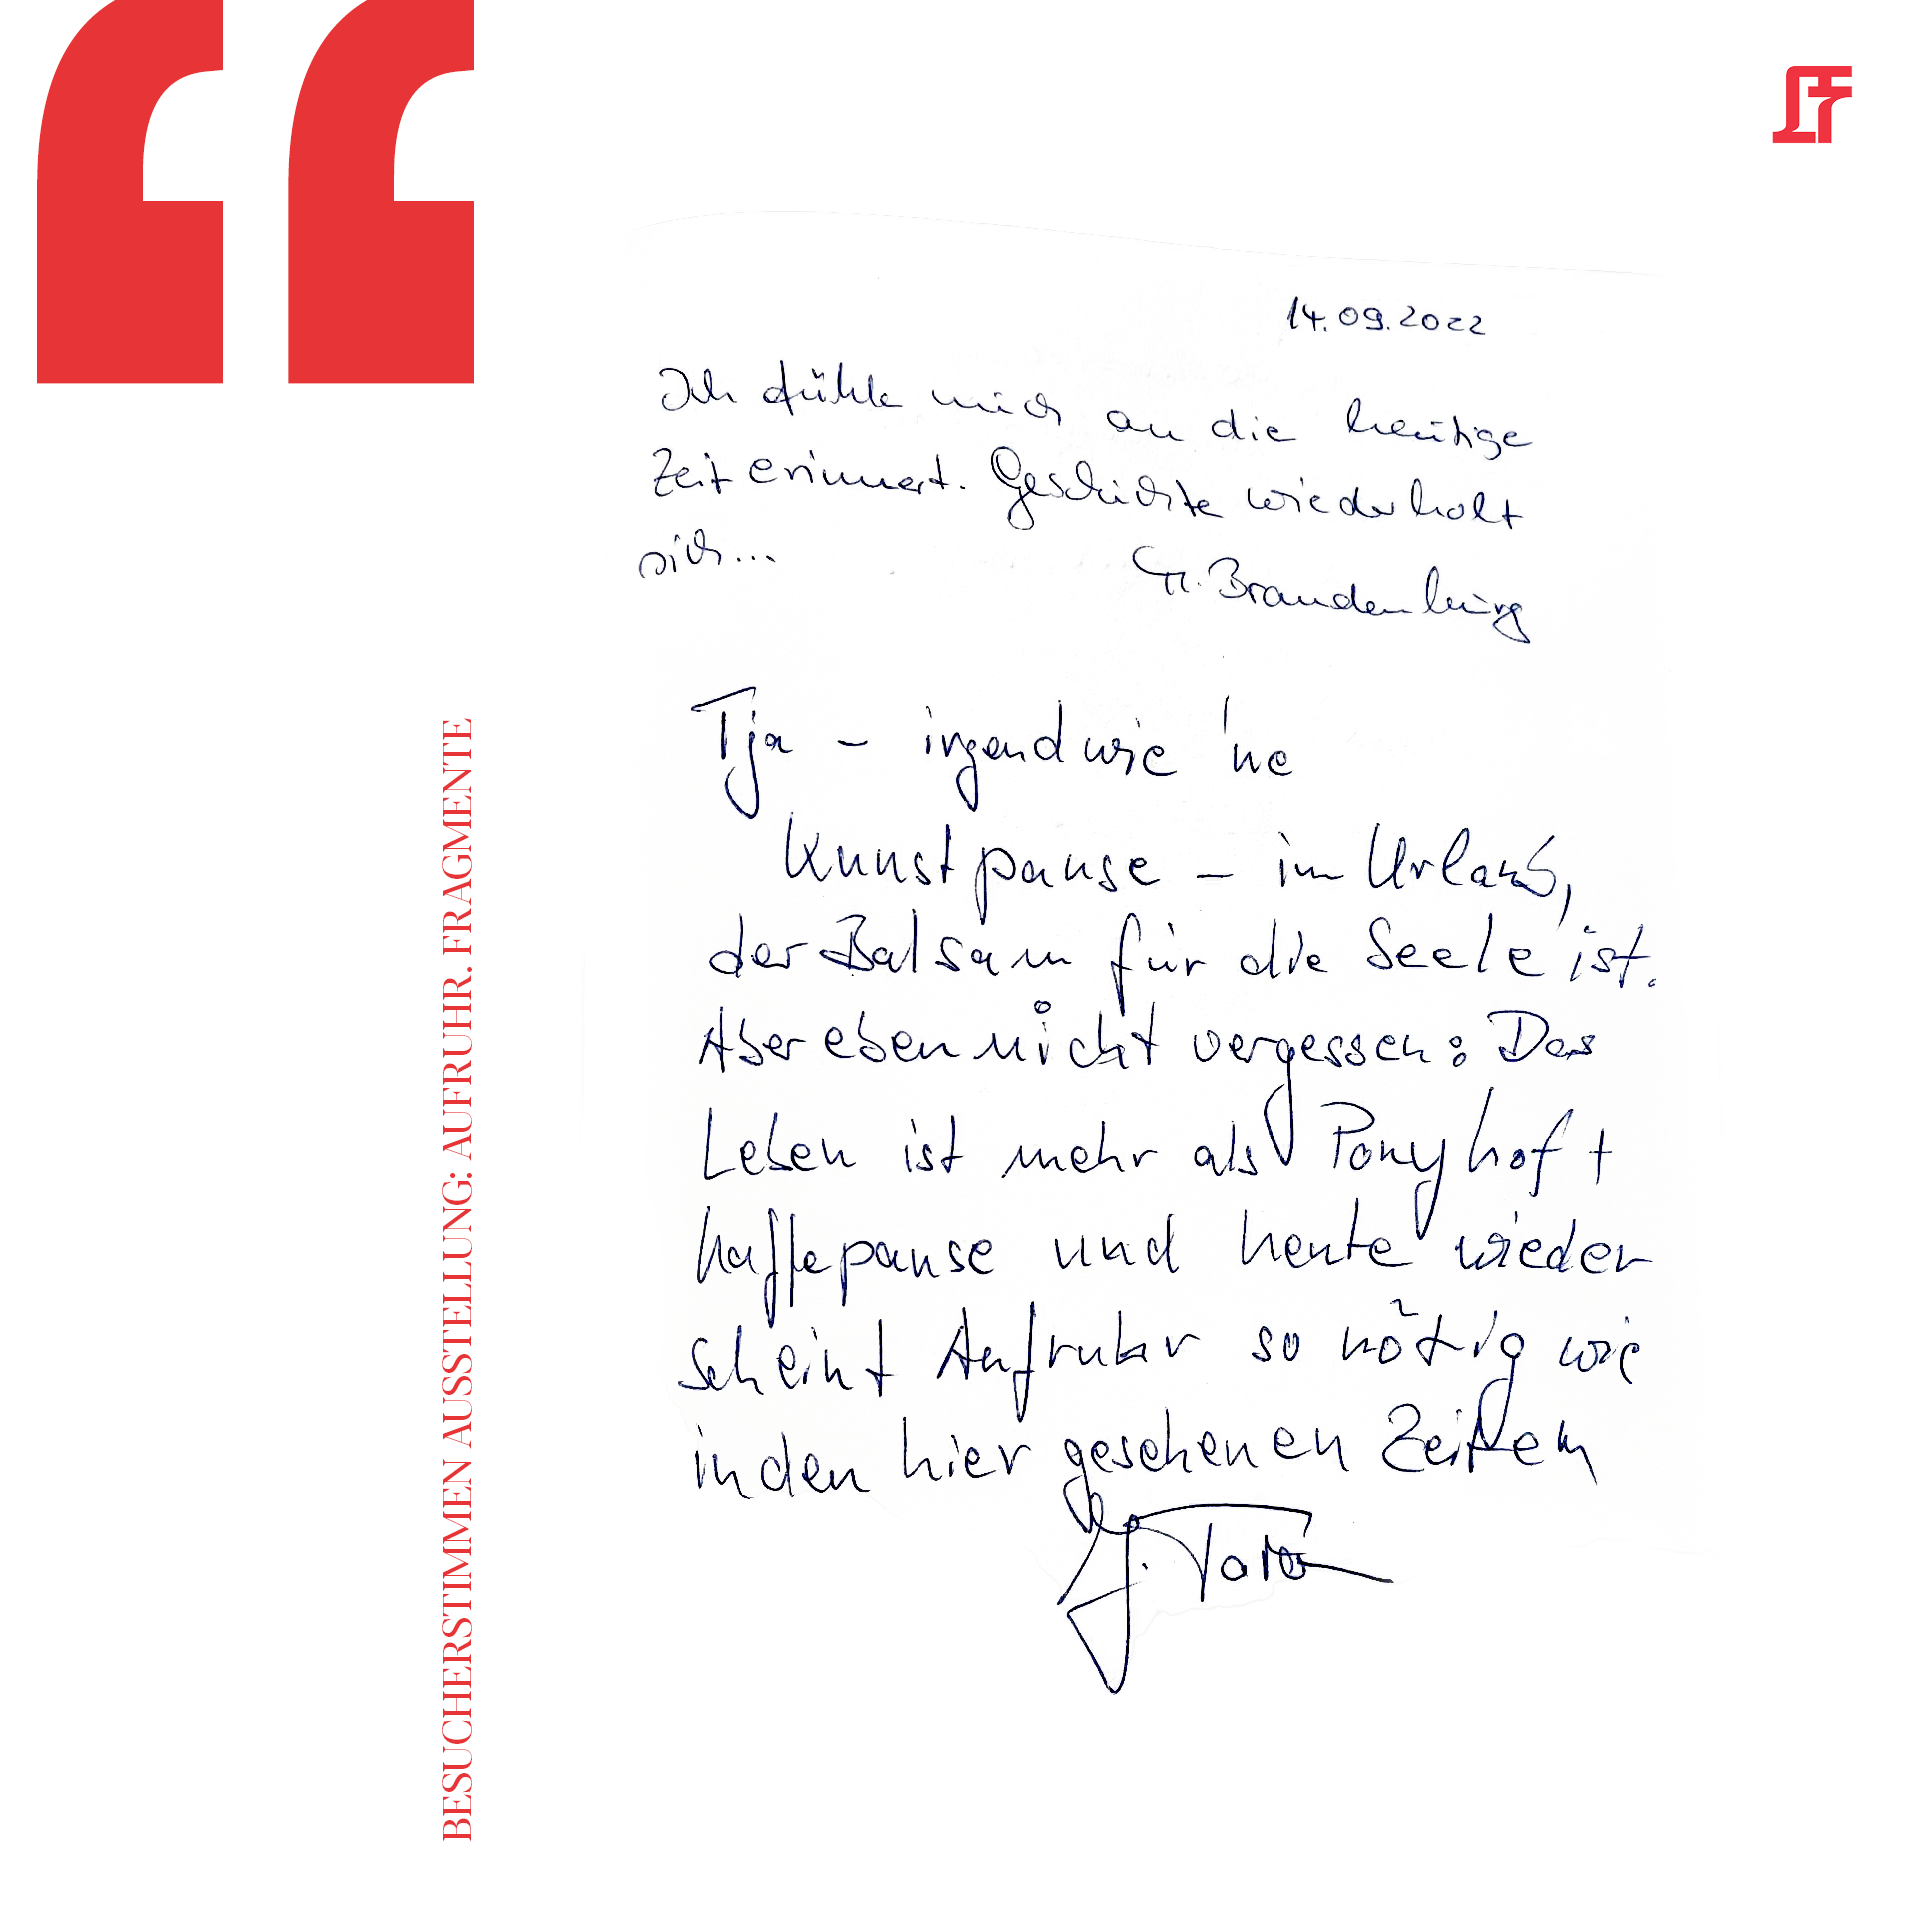 14.09.2022
Ich fühle mich an die heutige
Zeit erinnert. Geschichte wiederholt
sich...
Brandenburg
Tja – irgendwie 'ne
Kunstpause – im Urlaub,
der Balsam für die Seele ist.
Aber eben nicht vergessen: Das
Leben ist mehr als Ponyhof +
Kaffepause und heute wieder
scheint Aufruhr so nötig wie
in den hier gesehenen Zeiten
BESUCHERSTIMMEN AUSSTELLUNG: AUFRUHR. FRAGMENTE